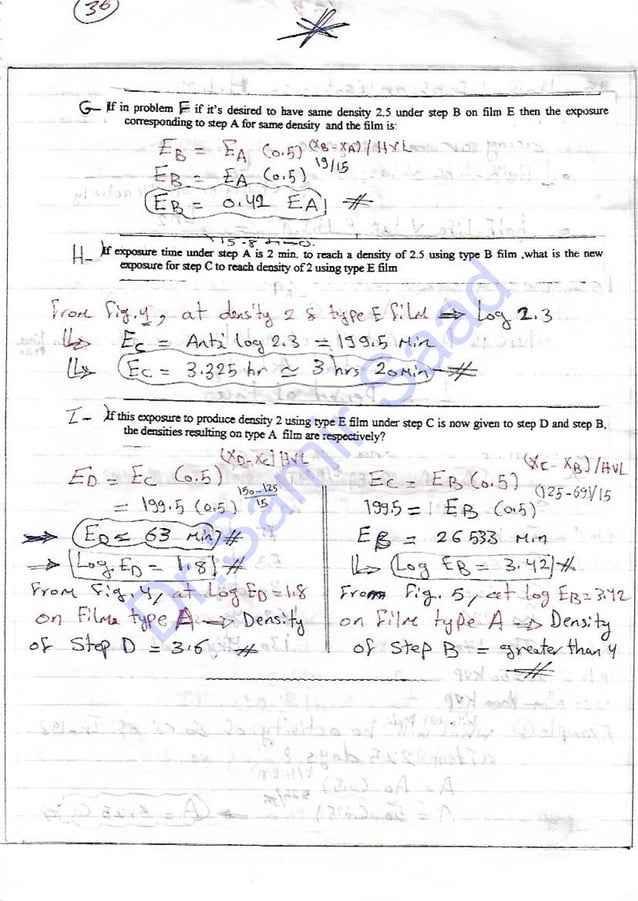 36
G- If in problem F if it's desired to have same density 2.5 under step B on film E then the exposure
corresponding to step A for same density and the film is:
EB = EA (0.5) (XB - XA) / HVL
EB = EA (0.5) 19/15
EB = 0.42 EA #
H- If exposure time under step A is 2 min. to reach a density of 2.5 using type B film ,what is the new
exposure for step C to reach density of 2 using type E film
From Fig. 4, at density 2 & type E film ⇒ Log 2.3
Ec = Anti log 2.3 = 199.5 Min
Ec = 3.325 hr ≃ 3 hrs 20 Min #
I- If this exposure to produce density 2 using type E film under step C is now given to step D and step B,
the densities resulting on type A film are respectively?
ED = EC (0.5) (XD - XC) HVL
= 199.5 (0.5) 150-125/15
ED = 63 Min #
Log ED = 1.8 #
From Fig. 4, at Log ED = 1.8
on Film type A → Density
of Step D = 3.6 #
EC = EB (0.5) (XC - XB) / HVL
199.5 = EB (0.5) (125-69)/15
EB = 26533 Min
Log EB = 3.42 #
From Fig. 5, at log EB = 3.42
on film type A ⇒ Density
of Step B = greater than 4
#
Dr. Samir Saad